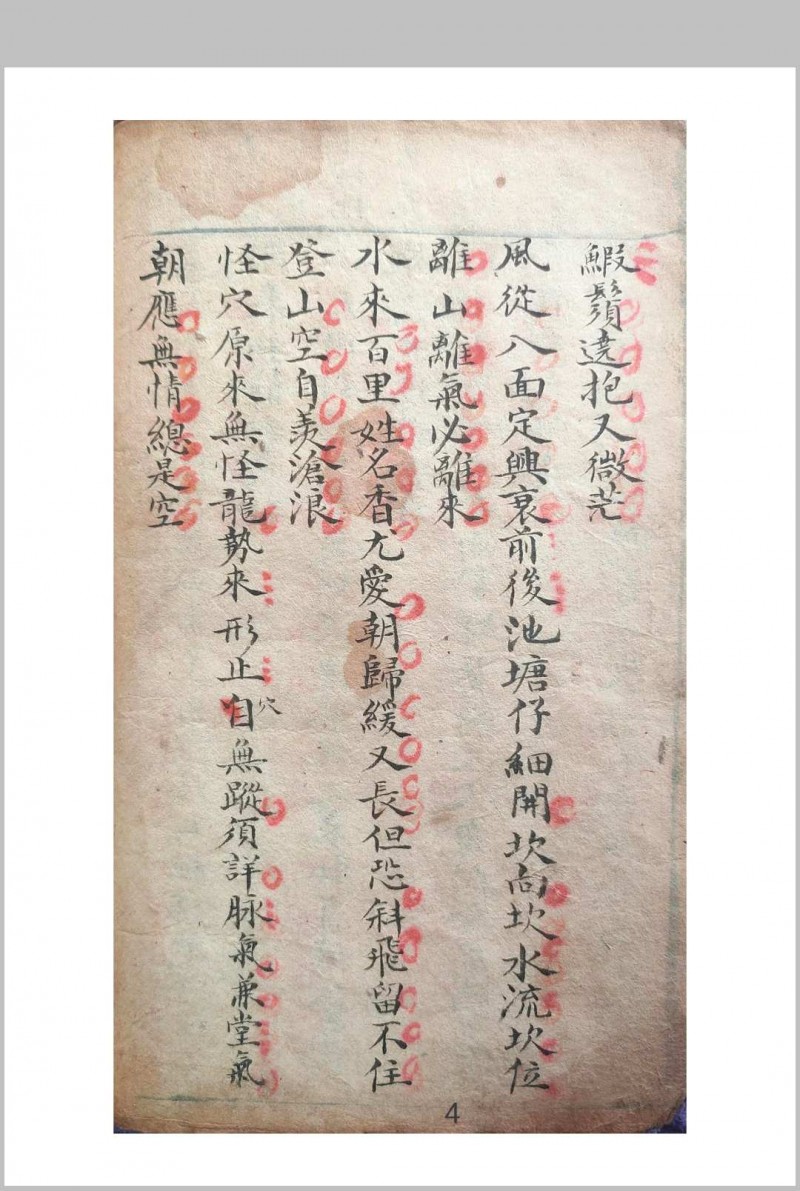 鰕鬚遶抱又微茫
風從八面定興衰前後池塘仔細開坎向坎水流坎位
離山離氣必離來
水來百里姓名香尤愛朝歸緩又長但恐斜飛留不住
登山空自羡滄浪
怪穴原來無怪龍勢來形止穴自無蹤須詳脉氣兼堂氣
朝應無情總是空
4